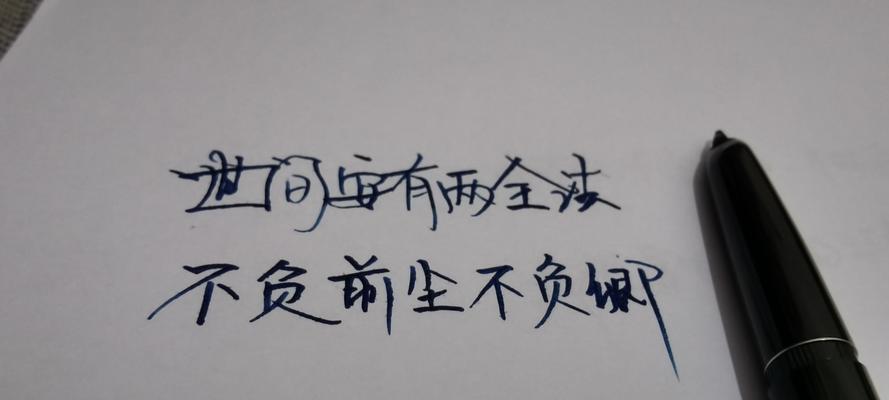 世间安有两全法
不负前尘不负卿